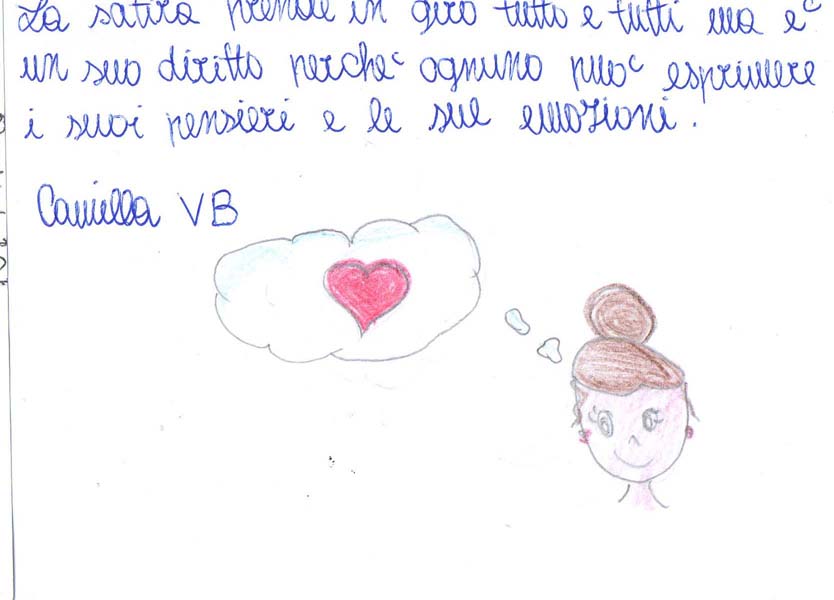 La satira prende in giro tutto e tutti ma e'
un suo diritto perche' ognuno puo' esprimere
i suoi pensieri e le sue emozioni.
Camilla VB